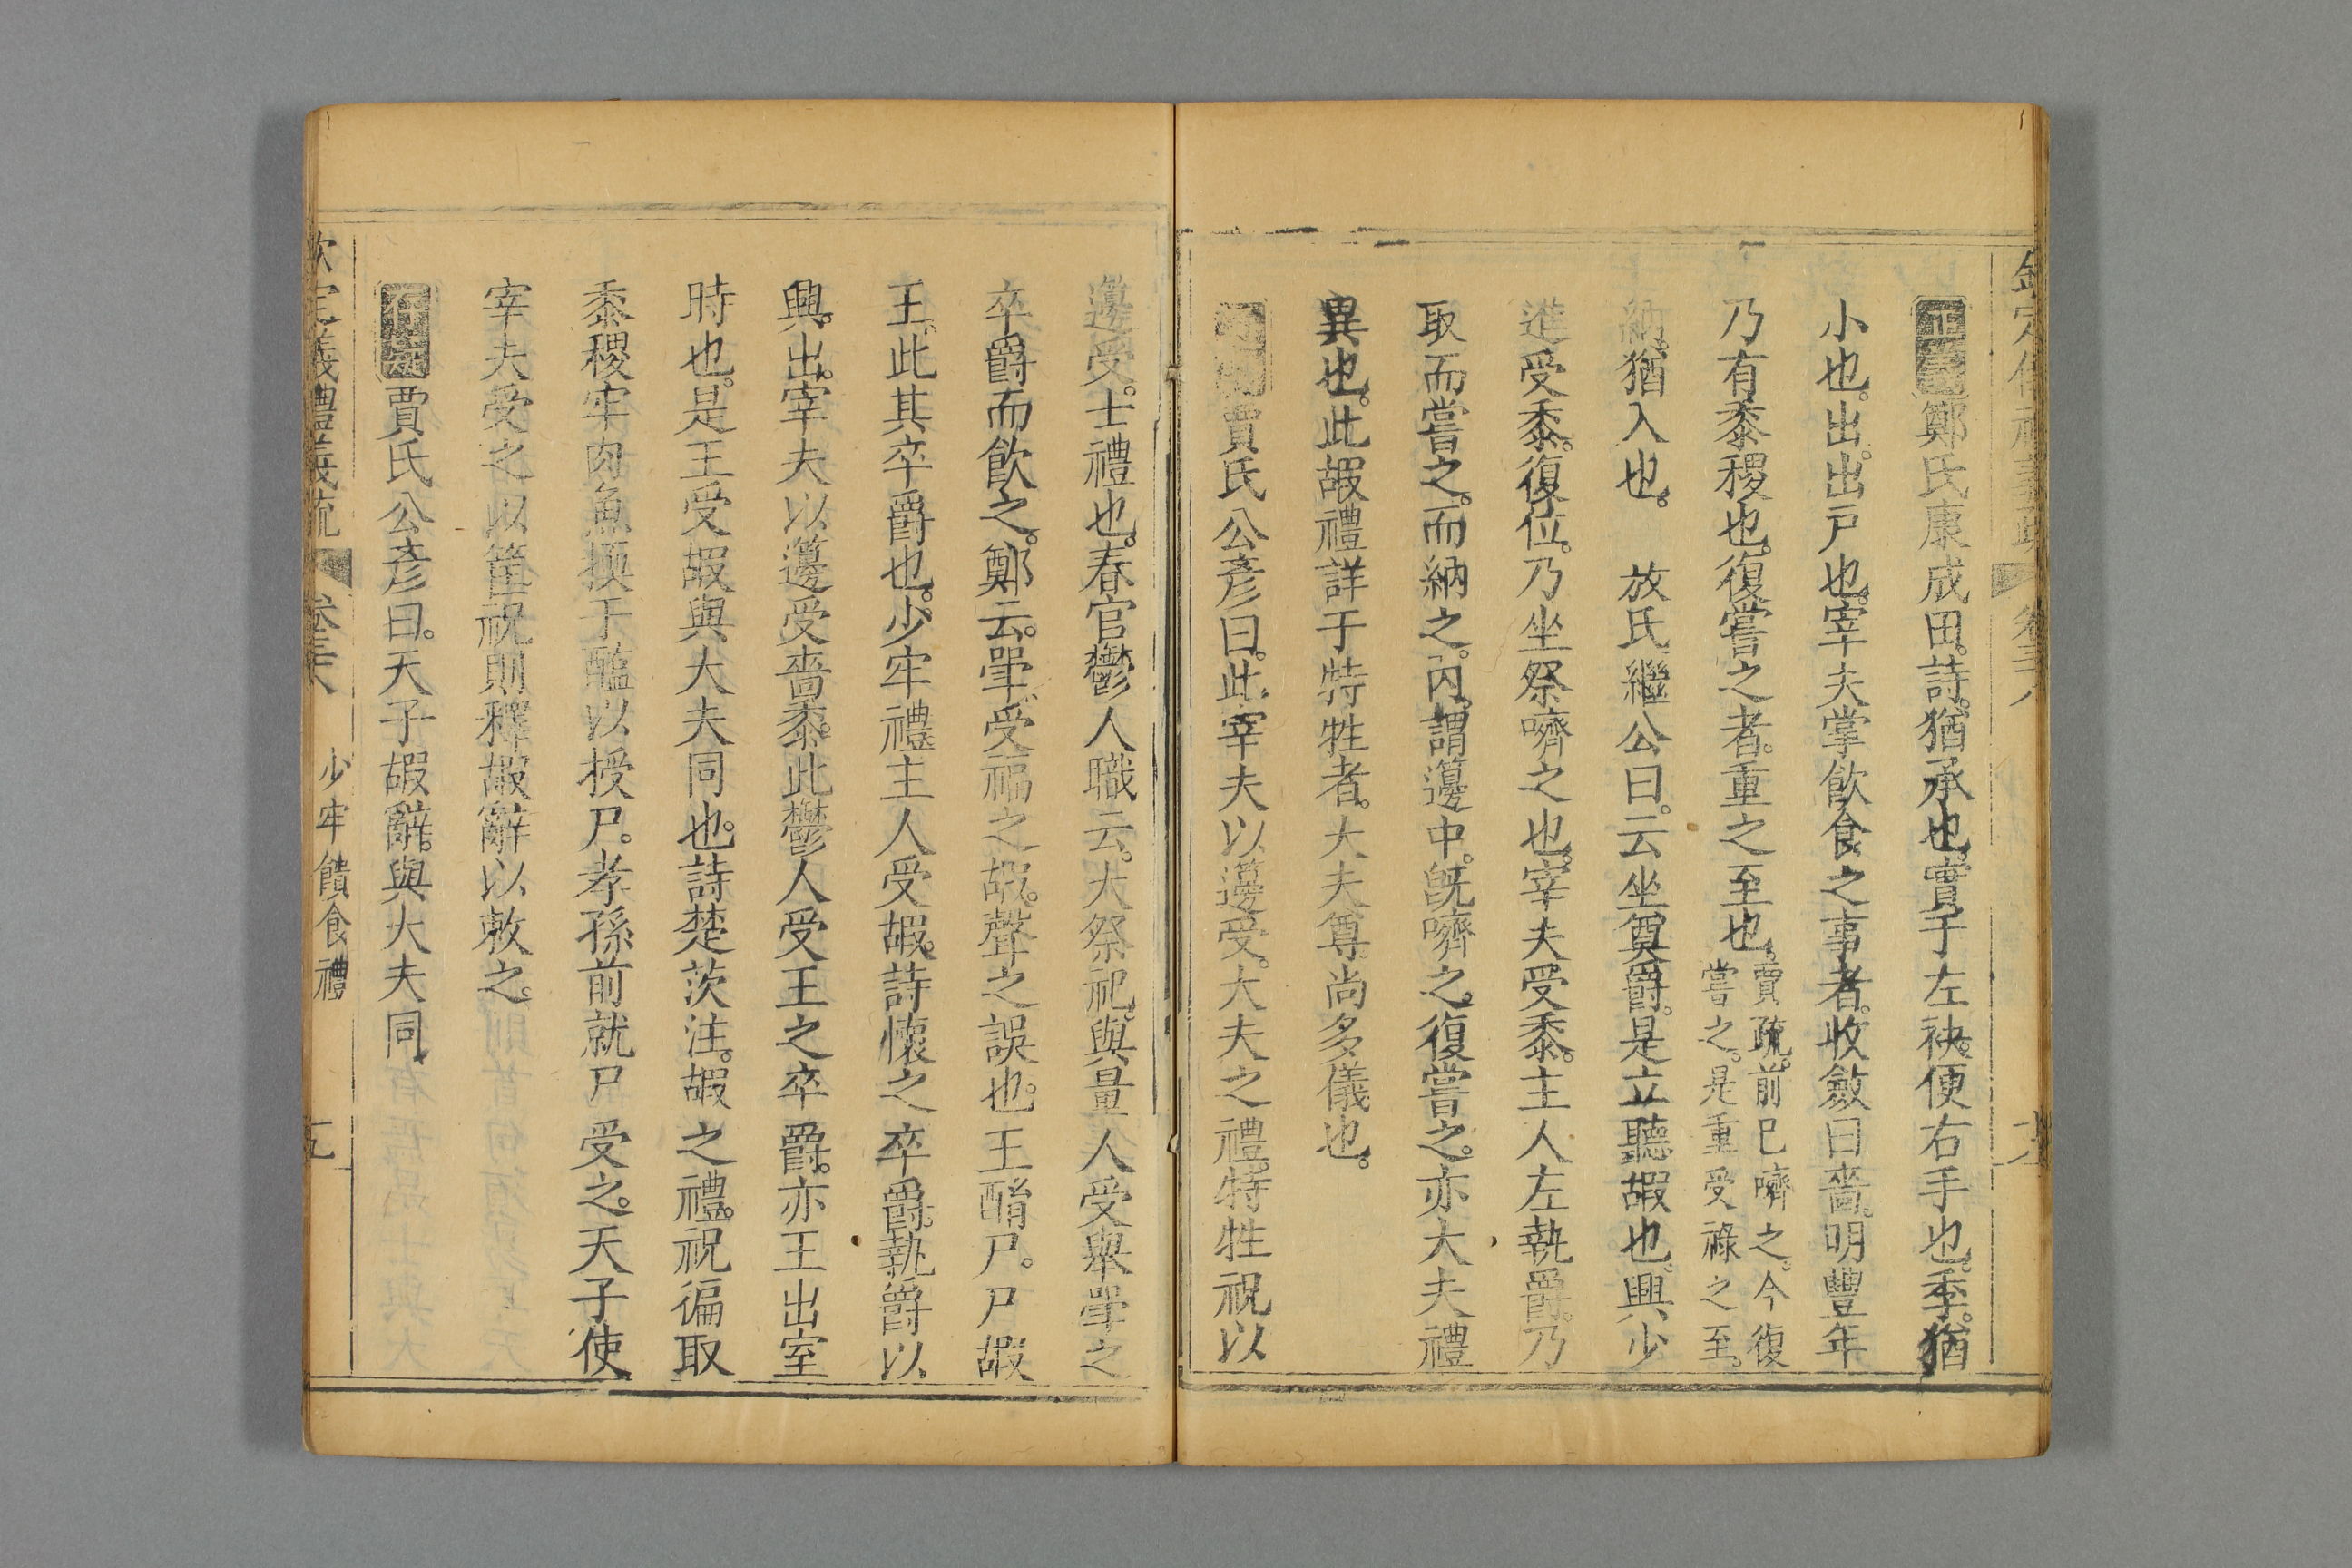 正義鄭氏康成曰。詩。猶承也。實于左袂。便右手也。季。猶
小也。出。出戸也。宰夫掌飲食之事者。收斂曰嗇。明豐年
乃有黍稷也。復嘗之者。重之至也。賈疏。前已嚌之。今復嘗之。是重受祿之至。
納。猶入也。 敖氏繼公曰。云坐奠爵。是立聽嘏也。興。少
進受黍。復位。乃坐祭嚌之也。宰夫受黍。主人左執爵。乃
取而嘗之。而納之。內。謂籩中。旣嚌之。復嘗之。亦大夫禮
異也。此嘏禮詳于特牲者。大夫尊。尚多儀也。
賈氏公彥曰。此宰夫以籩受。大夫之禮。特牲祝以
籩受。士禮也。春官鬱人職云。大祭祀。與量人受舉斝之
卒爵而飲之。鄭云。斝。受福之嘏。聲之誤也。王酳尸。尸嘏
王。此其卒爵也。少牢禮主人受嘏。詩懷之卒爵。執爵以
興。出。宰夫以籩受嗇黍。此鬱人受王之卒爵。亦王出室
時也。是王受嘏與大夫同也。詩楚茨注。嘏之禮。祝徧取
黍稷牢肉魚擩于醢以授尸。孝孫前就尸受之。天子使
宰夫受之以筐。祝則釋嘏辭以敕之。
存疑賈氏公彥曰。天子嘏辭。與大夫同。
欽定義禮義疏 卷三十八 少牢饋食禮